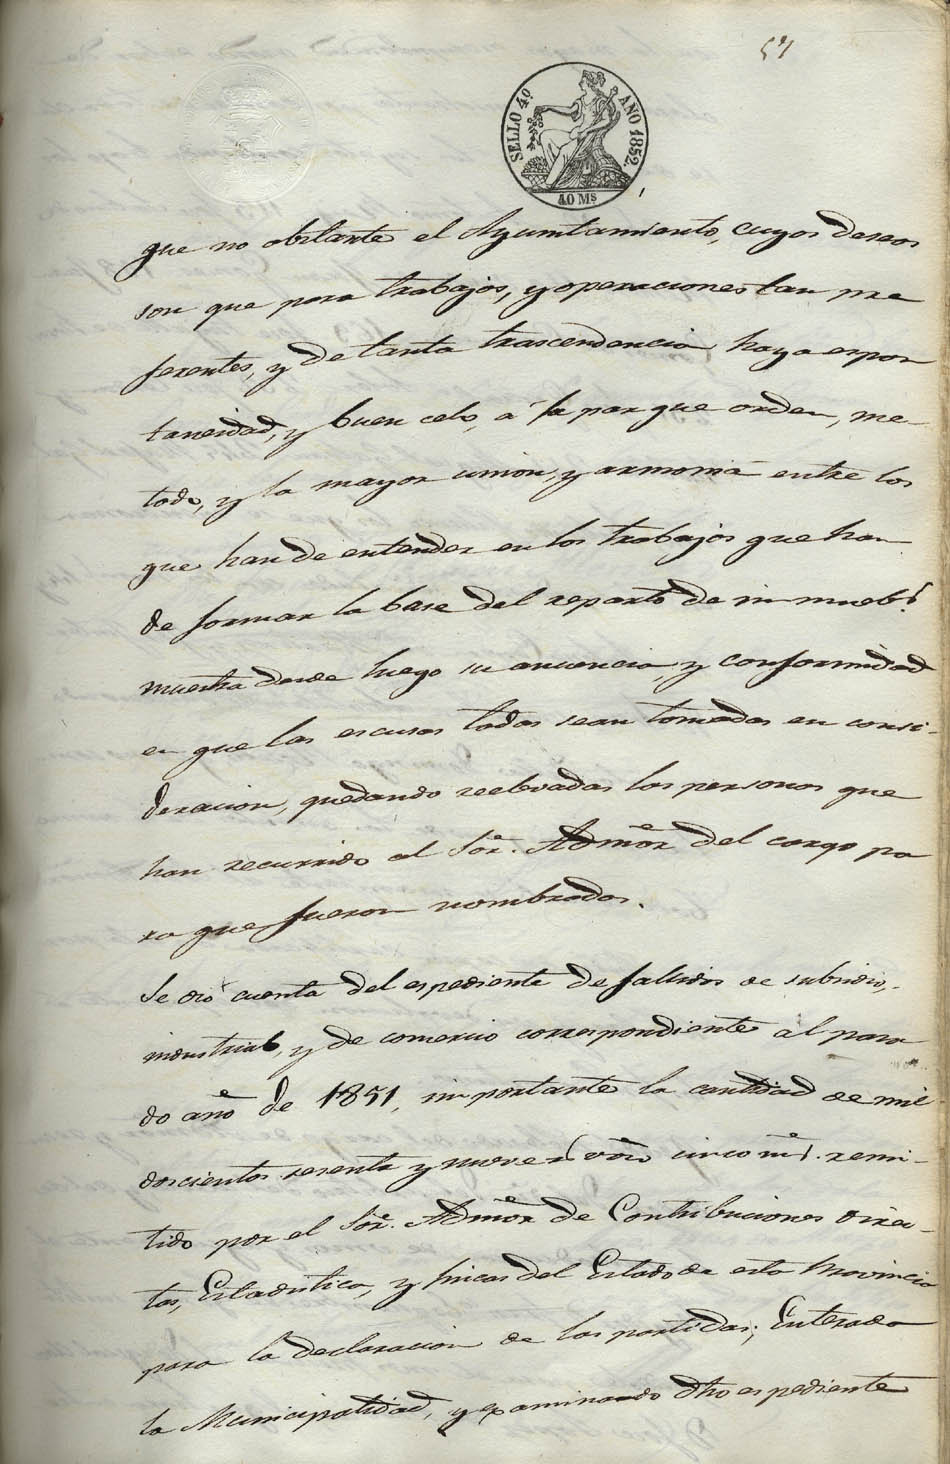 54
SELLO 4º AÑO 1852.
40 Ms
que no obstante el Ayuntamiento, cuyos deseos
son que para trabajos, y operaciones tan pre
ferentes, y de tanta trascendencia haya espon
taneidad, y buen celo, a la par que orden, me-
todo, y la mayor union, y armonia entre los
que han de entender en los trabajos que han
de formar la base del reparto de inmuebs.
muestra desde luego su anuencia, y conformidad
en que las escusas todas sean tomadas en consi-
deracion, quedando relebadas las personas que
han recurrido al Sor. Admor del cargo pa
ra que fueron nombradas.
Se dió cuenta del espediente de fallidos de subsidio,
industrial, y de comercio correspondiente al pasa
do año de 1851, importante la cantidad de mil
doscientos sesenta y nueve rs von cinco ms. remi-
tido por el Sor. Admor de Contribuciones direc-
tas, Estadistica, y fincas del Estado de esta Provincia
para la declaracion de las partidas; Enterada
la Municipalidad, y examinando dho espediente